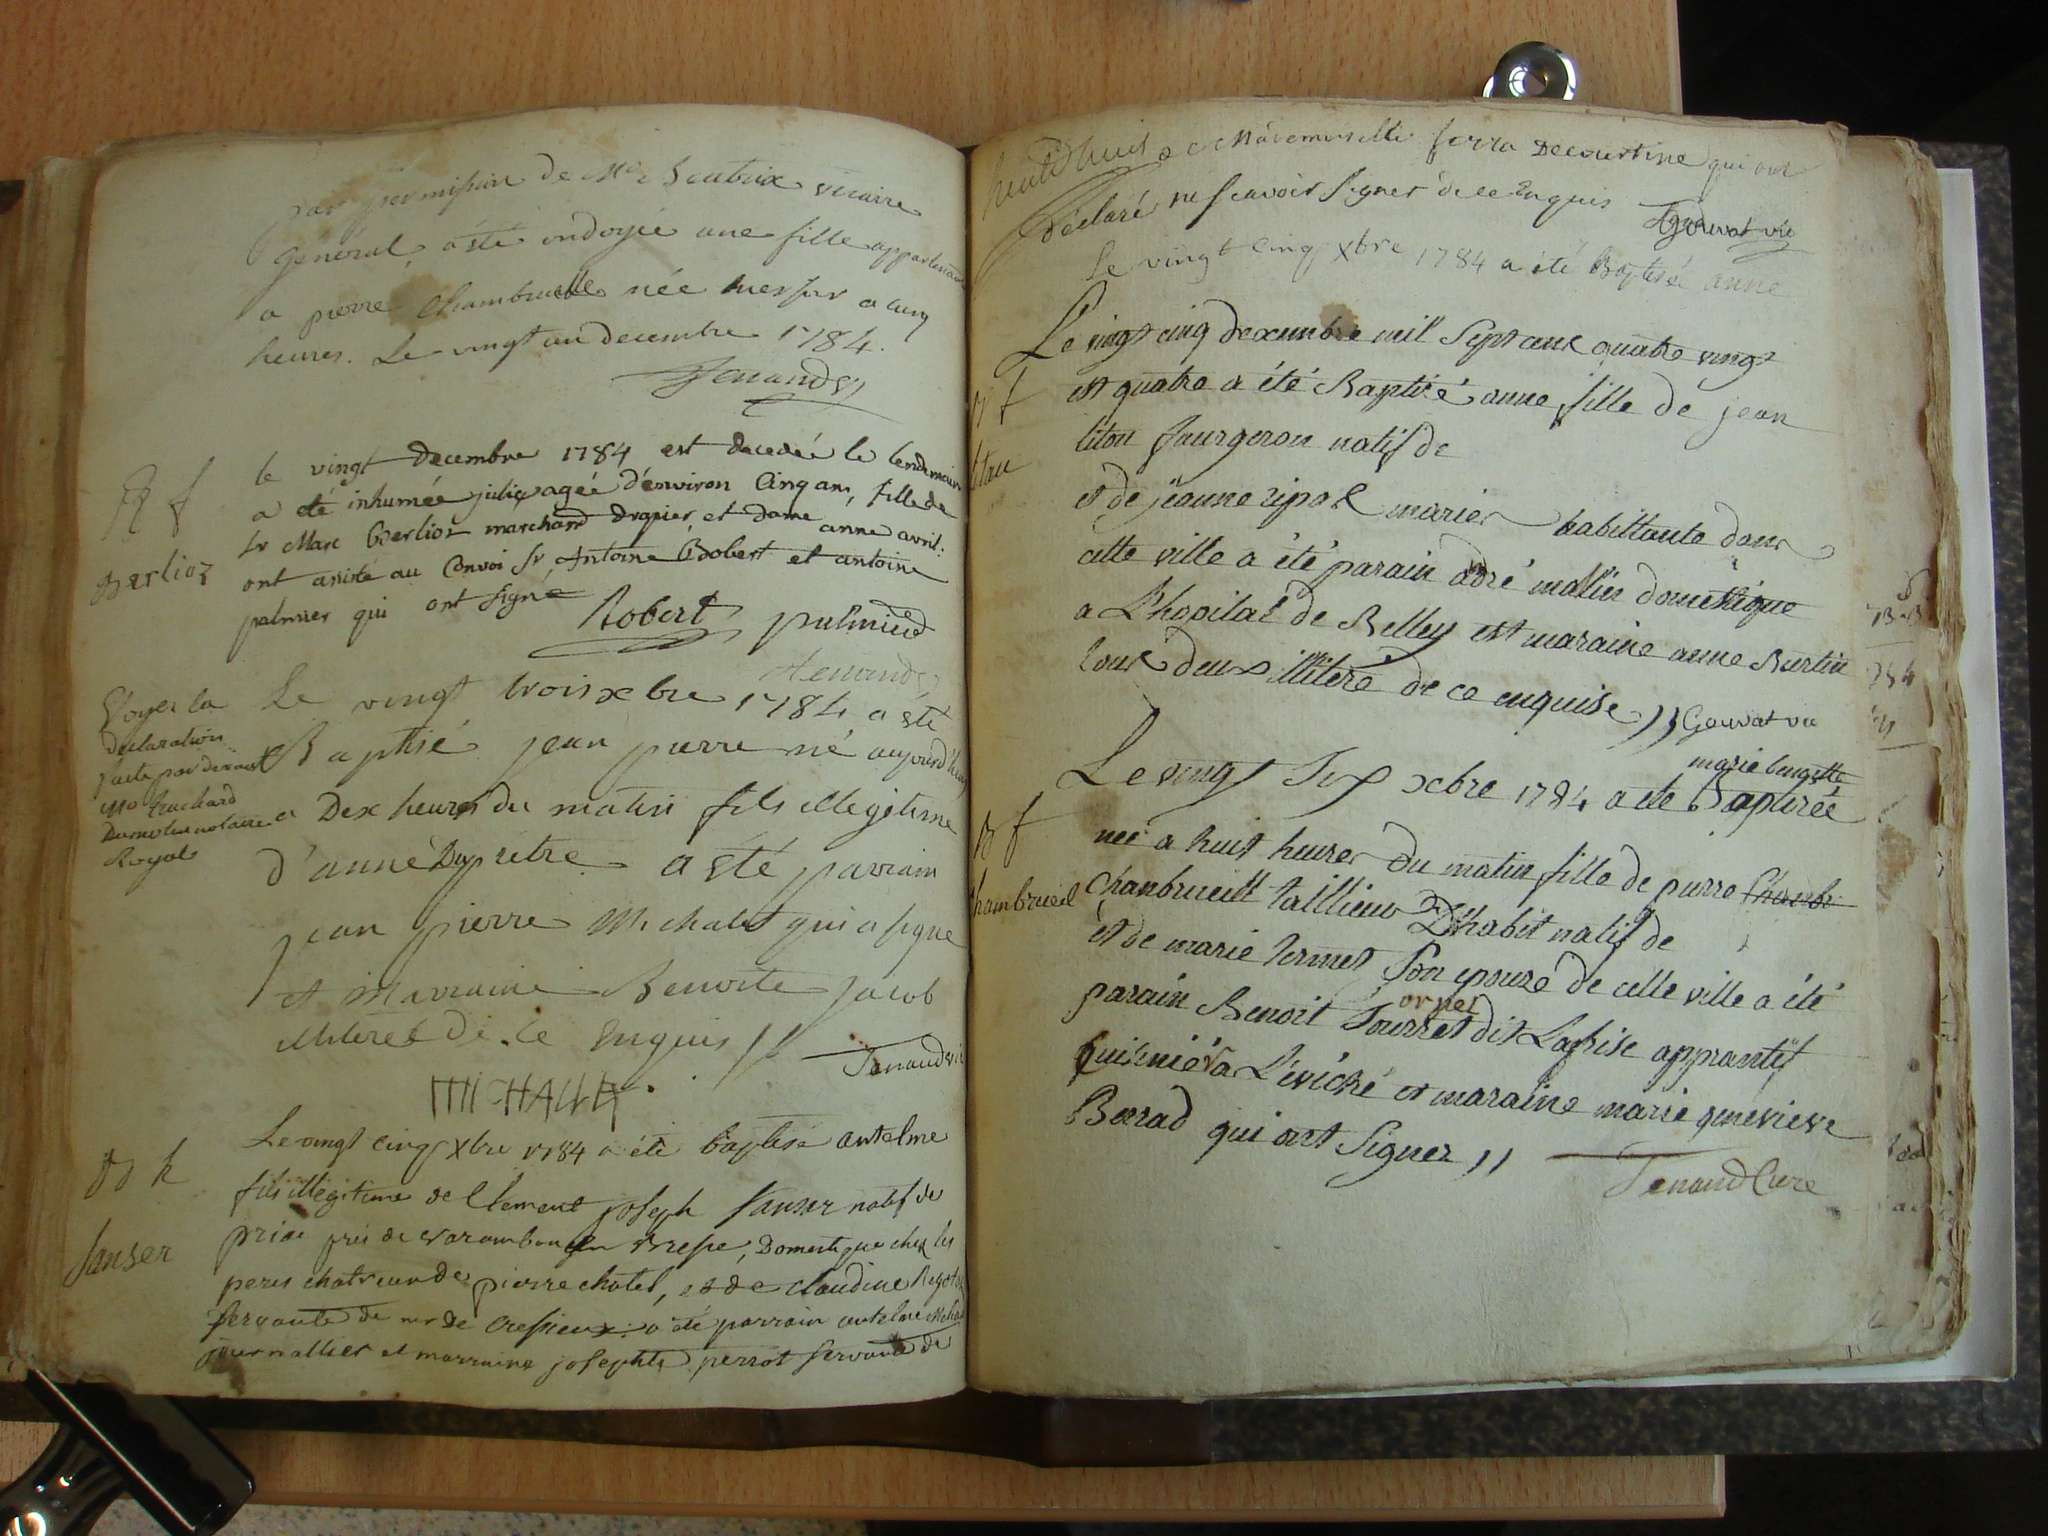 par permission de Mr Beatrix vicaire
général, a été ondoyée une fille appartenant
a pierre Chambrueille née hier soir a cinq
heures. Le vingt un decembre 1784.
Jenaud
le vingt decembre 1784 est decedée le lendemain
a été inhumée julie agée d'environ Cinq ans, fille de
Sr Marc Berlioz marchand drapier, et dame anne avril:
ont assisté au Convoi Sr Antoine Robert et antoine
palmier qui ont signé
Berlioz
Robert palmier
Voyez la
declaration
faite par devant
Royal
Le vingt trois xbre 1784 a été
Baptisé jean pierre né aujourd'huy
a Dex heures du matin fils illegitime
d'anne Dupretre a été parrain
jean pierre Michalet qui a signé
et Marraine Benoite Jacob
illiteré de ce Enquis //
Jenaud vic
Le vingt cinq xbre 1784 a été baptisé antelme
fils illégitime de Clement joseph Sanser natif de
priai près de Varambon en Bresse, Domestique chez les
peres chatreux de pierre chatel, et de claudine
servante de mr De Cressieux: a été parrain antelme
journallier et marraine josephte perrot servante de
Sanser
Mademoiselle Decourtine qui ont
declaré ne scavoir signer de ce Enquis
Gouvat vic
Le vingt cinq xbre 1784 a été Baptisée anne
Le vingt cinq dexembre mil Sept cent quatre vingt
et quatre a été Baptisé anne fille de jean
titon faurgeron natif de
et de jeanne ripol maries habittants dans
cette ville a été parain adré molier domestique
a L'hopital de Belley est maraine anne Burtin
tous deux illiteré de ce enquise // Gouvat vic
marie benoitte
Le vingt Six xbre 1784 a ete Baptirée
née a huit heures du matin fille de pierre Chanbr
Chanbrueill taillieur D'habit natif de
et de marie termet Son epouze de cette ville a été
ornet
parain Benoit Tourret dit Lafrise apprantif
Cuisinié a L'eviché et maraine marie genevieve
Berrad qui ont Signer //
Jenaud Cure